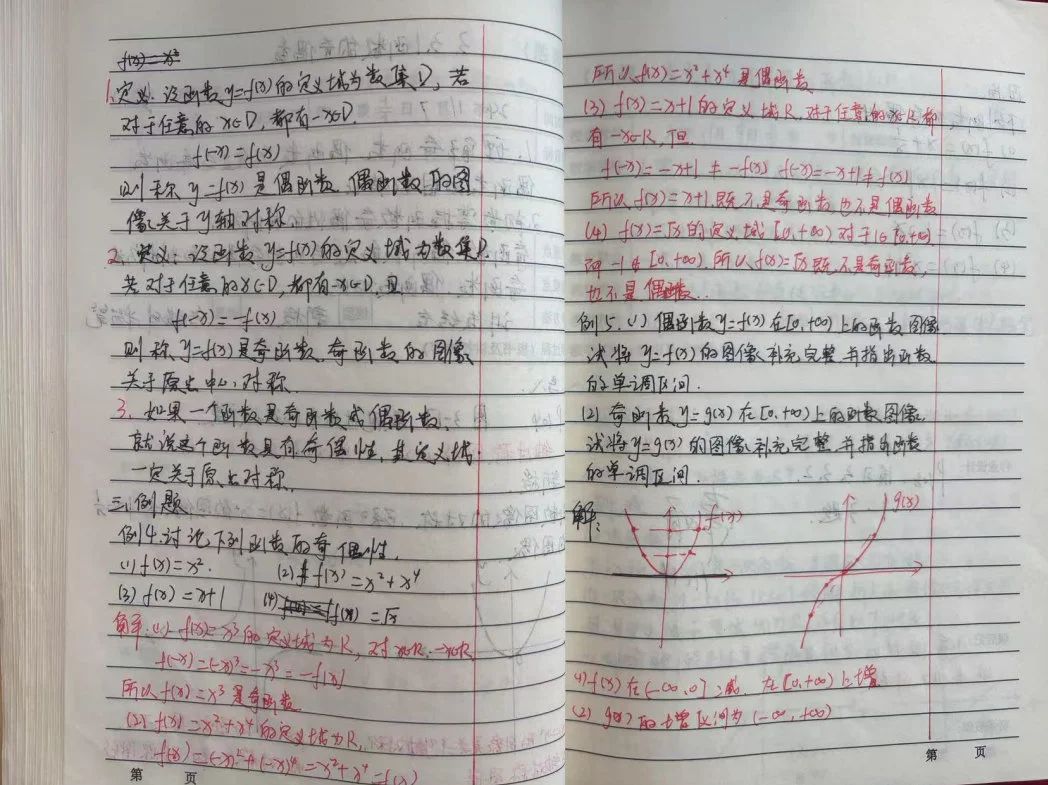 1. 定义: 设函数y=f(x)的定义域为数集D, 若
对于任意的x∈D, 都有-x∈D,
f(-x)=f(x)
则称 y=f(x) 是偶函数, 偶函数的图
像关于y轴对称.
2. 定义: 设函数y=f(x)的定义域为数集D
若对于任意的x∈D, 都有-x∈D, 且
f(-x)=-f(x)
则称 y=f(x)是奇函数, 奇函数的图像
关于原点中心对称
3. 如果一个函数是奇函数或偶函数,
就说这个函数具有奇偶性, 其定义域
一定关于原点对称.
三、例题
例4.讨论下列函数的奇偶性.
(1) f(x)=x².
(2) f(x)=x²+x⁴
(3) f(x)=x+1
(4) f(x)=√x
解: (1) f(x)=x³的定义域为R, 对x∈R, -x∈R
f(-x)=(-x)³=-x³=-f(x)
所以f(x)=x³是奇函数
(2) f(x)=x²+x⁴的定义域为R,
f(-x)=(-x)²+(-x)⁴=x²+x⁴=f(x)
第 页
所以 f(x)=x²+x⁴ 是偶函数
(3) f(x)=x+1的定义域R, 对于任意的x∈R都
有-x∈R, 但
f(-x)=-x+1≠-f(x) f(-x)=-x+1≠f(x)
所以f(x)=x+1既不是奇函数也不是偶函数
(4) f(x)=√x的定义域[0,+∞) 对于1∈[0,+∞)
而-1∉[0,+∞). 所以f(x)=√x既不是奇函数,
也不是偶函数.
例5. (1) 偶函数y=f(x)在[0,+∞)上的函数图像
试将y=f(x)的图像补充完整并指出函数
的单调区间.
(2) 奇函数y=g(x)在[0,+∞)上的函数图像
试将y=g(x)的图像补充完整并指出函数
的单调区间.
解:
f(x)
g(x)
(1) f(x)在(-∞,0]减, 在[0,+∞)上增
(2) g(x)的增区间为(-∞,+∞)
第 页